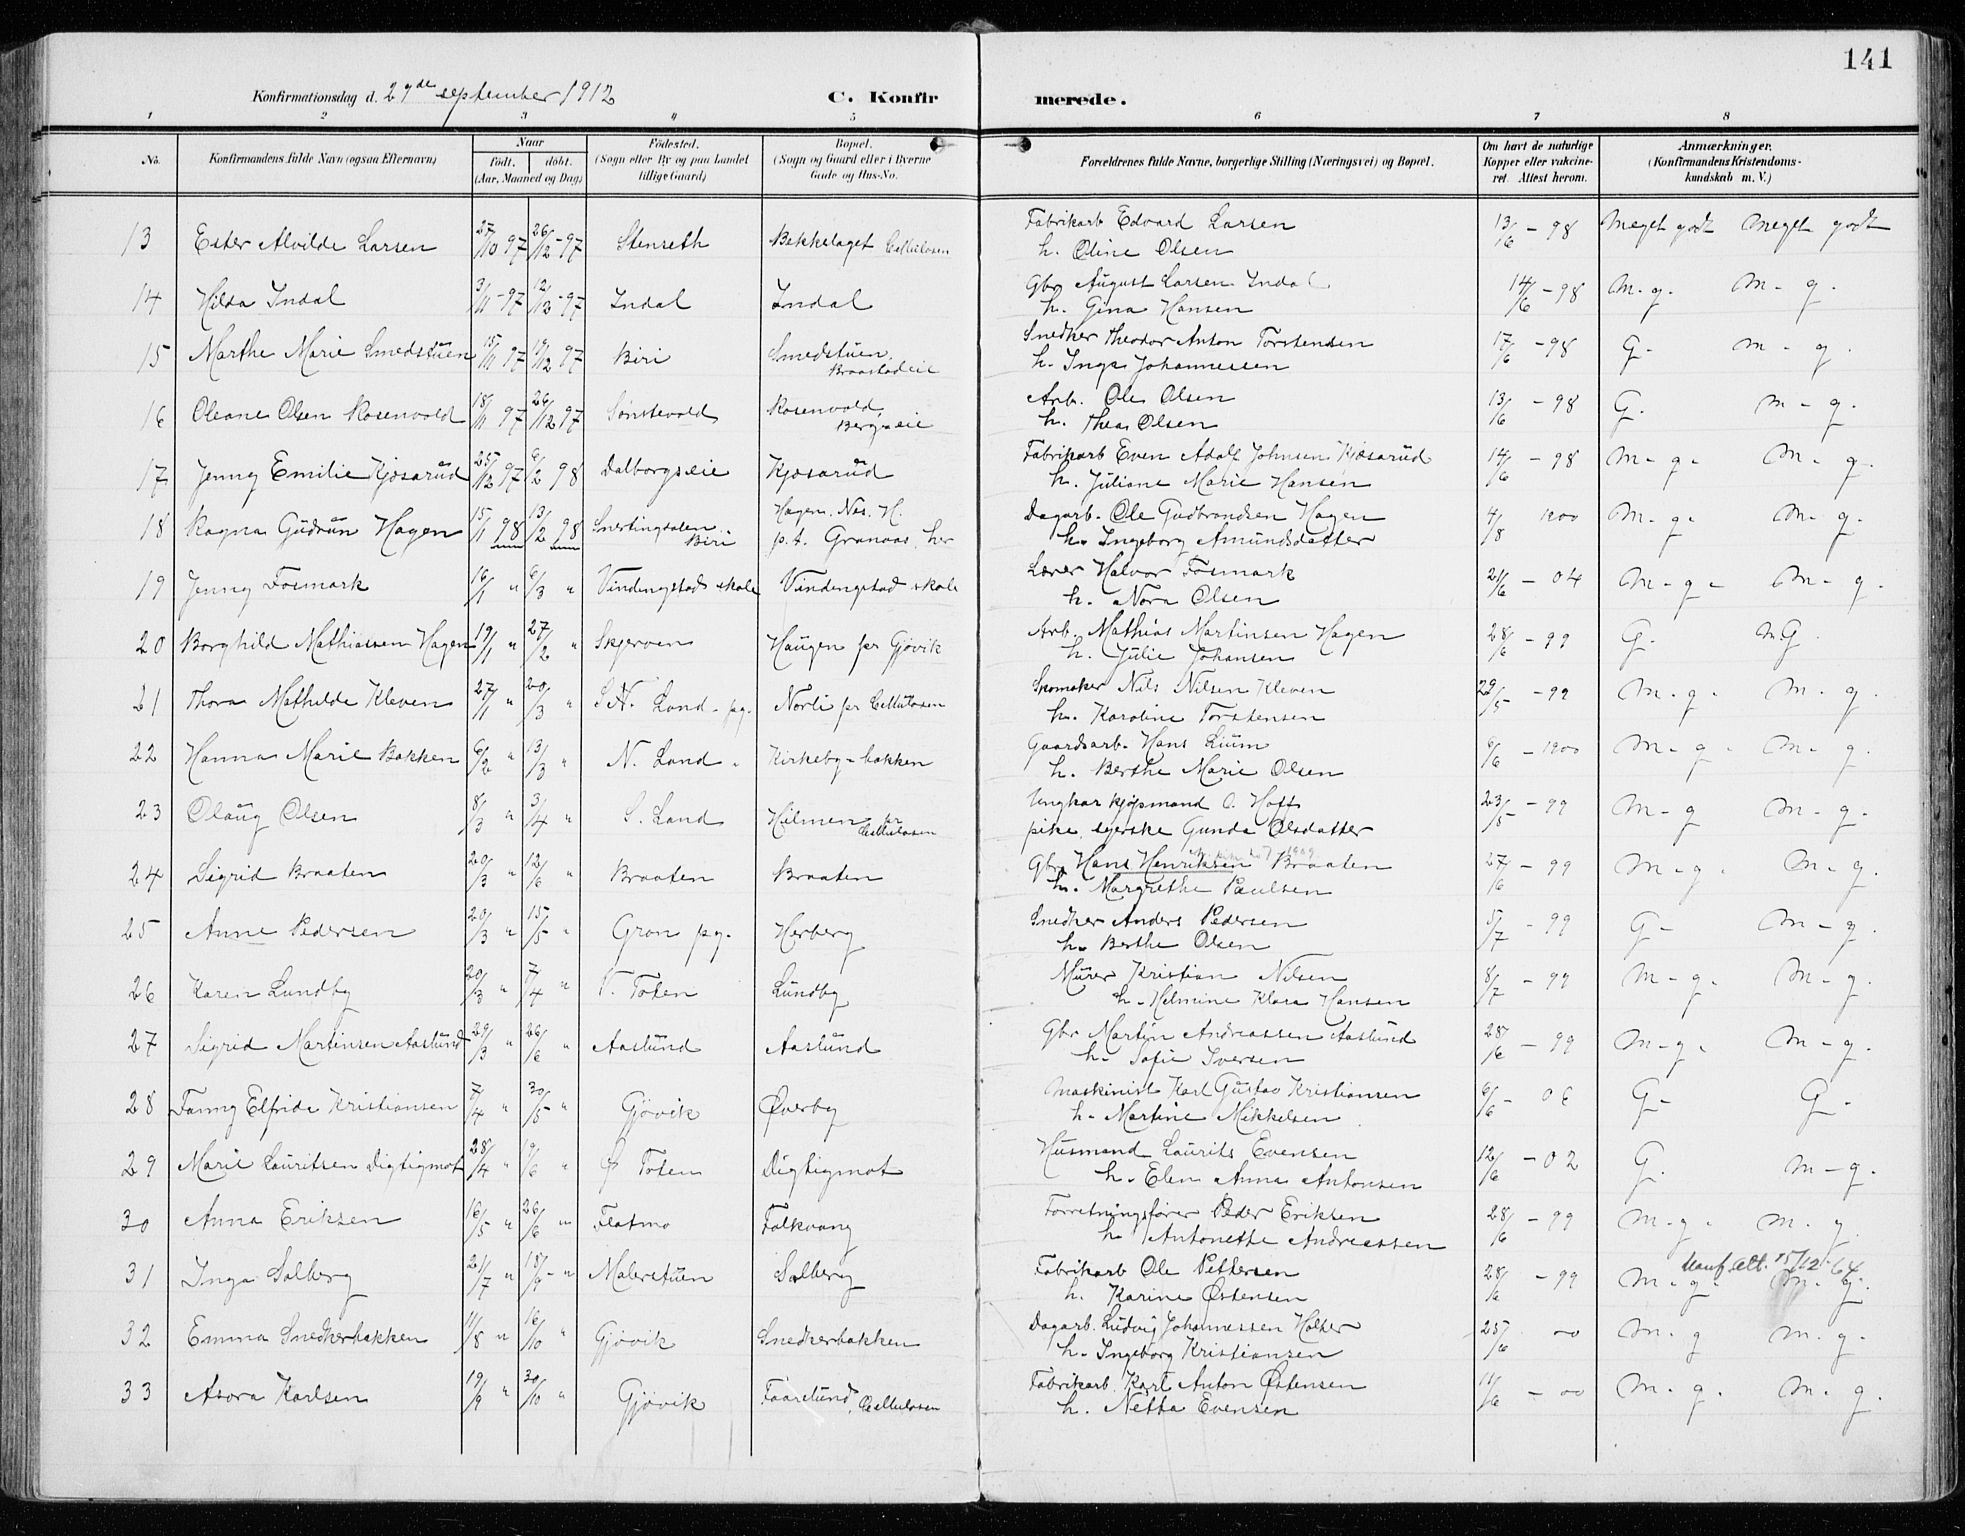 141
Konfirmationsdag d. 29de september 1912
C. Konfir merede.
1 2 3 4 5 6 7 8
No. Konfirmandens fulde Navn (ogsaa Efternavn) Naar født. døbt. (Aar, Maaned og Dag) Fødested. (Sogn eller By og paa Landet tillige Gaard) Bopæl. (Sogn og Gaard eller i Byerne Gade og Hus-No. Forældrenes fulde Navne, borgerlige Stilling (Næringsvei) og Bopæl. Om havt de naturlige Kopper eller vaksineret. Attest herom. Anmærkninger. (Konfirmandens Kristendomskundskab m. V.)
13 Ester Alvilde Larsen 27/10 97 26/12-97 Stenseth Bekkelaget Cellulosen Fabrikarb Edvard Larsen 13/6 - 98 Meget godt Meget godt
h. Oline Olsen
14 Hilda Indal 3/11-97 12/13-97 Indal Indal Gbr August Larsen Indal 14/6 - 98 M. g. M - g.
h. Gina Hansen
15 Marthe Marie Smedstuen 15/11 97 19/12 97 Biri Smedstuen, Braastadeie Snedker Theodor Anton Torstensen 17/6 - 98 G- m - g.
h. Inga Johannessen
16 Oleane Olsen Rosenvold 18/11 97 26/12 97 Sønstevold Rosenvold, Bergseie Arb. Ole Olsen 13/6 - 98 G. m - g.
h. Thea Olsen
17 Jenny Emilie Kjøsarud 25/12 97 6/2 98 Dalborgseie Kjøsarud Fabrikarb Even Adolf Johnsen Kjøsarud 14/6 - 98 M - g - M - g.
h. Juliane Marie Hansen
18 Ragna Gudrun Hagen 15/1 98 13/2 98 Snertingdalen Biri Hagen, Nas. H. p.t. Granaas, her Dagarb. Ole Gudbrandsen Hagen 4/8 1900 M - g - M - g.
h. Ingeborg Amundsdatter
19 Jenny Fosmark 16/1 " 6/3 " Vindengstad skole Vindengstad skole Lærer Halvor Fosmark 21/6 - 04 M - g - M - g.
h. Nora Olsen
20 Borghild Mathiassen Hagen 19/1 " 27/2 " Skjerven Haugen pr Gjøvik Arb. Mathias Martinsen Hagen 28/6 - 99 G. m.G.
h. Julie Johansen
21 Thora Mathilde Kleven 27/1 " 20/3 " S.N. Land - pg. Norli pr Cellulosen Skomaker Nils Nilsen Kleven 29/5 - 99 M - g - M - g.
h. Karoline Torstensen
22 Hanna Marie Bakken 6/2 " 13/3 " N. Land - Kirkeby-bakken Gaardsarb. Hans Lium 6/6 - 1900 M - g - M - g.
h. Berthe Marie Olsen
23 Olaug Olsen 8/3 " 3/4 " S. Land Hilmen pr Cellulosen Ungkar kjøpmand O. Hoff 23/5 - 99 M - g M - g.
pike, syerske Gunda Olsdatter
24 Sigrid Braaten 20/3 " 12/6 " Braaten Braaten Gbr Hans Henriksen Braaten 27/6 - 99 M - g - M - g.
h. Margrethe Paulsen
25 Anne Pedersen 20/3 " 15/5 " Gran pg. Herberg Snedker Anders Pedersen 5/7 - 99 G - M - g.
h. Berthe Olsen
26 Karen Lundby 20/3 " 7/4 " V. Toten Lundby Murer Kristian Nilsen 8/7 - 99 M - g. M - g.
h. Helmine Klara Hansen
27 Sigrid Martinsen Aaslund 29/3 " 26/6 " Aaslund Aaslund Gbr Martin Andreassen Aaslund 28/6 - 99 M - g - M - g.
h. Sofie Iversen
28 Fanny Elfride Kristiansen 7/4 " 30/5 " Gjøvik Øverby Maskinist Karl Gustav Kristiansen 6/6 - 06 G - G -
h. Martine Mikkelsen
29 Marie Lauritsen Digtigmot 28/4 " 19/6 " Ø Toten Digtigmot Husmand Laurits Evensen 12/6 - 02 G. M - g.
h. Elen Anna Antonsen
30 Anna Eriksen 16/5 " 26/6 " Flatmo Falkvang Forretningsfører Peder Eriksen 28/6 - 99 M - g - M. g.
h. Antonette Andreassen
31 Inga Solberg 21/7 " 18/9 - " Malerstuen Solberg Fabrikarb Ole Pettersen 28/6 - 99 M - g - M - g. Konf. att. 15/12-64.
h. Karine Østensen
32 Emma Snedkerbakken 11/8 " 16/10 " Gjøvik Snedkerbakken Dagarb. Ludvig Johannessen Holter 25/6 00 M - g M - g.
h. Ingeborg Kristiansen
33 Asora Karlsen 19/9 " 30/10 " Gjøvik Faarelund, Cellulosen Fabrikarb. Karl Anton Østensen 11/6 - 00 M - g. M - g.
h. Netta Evensen